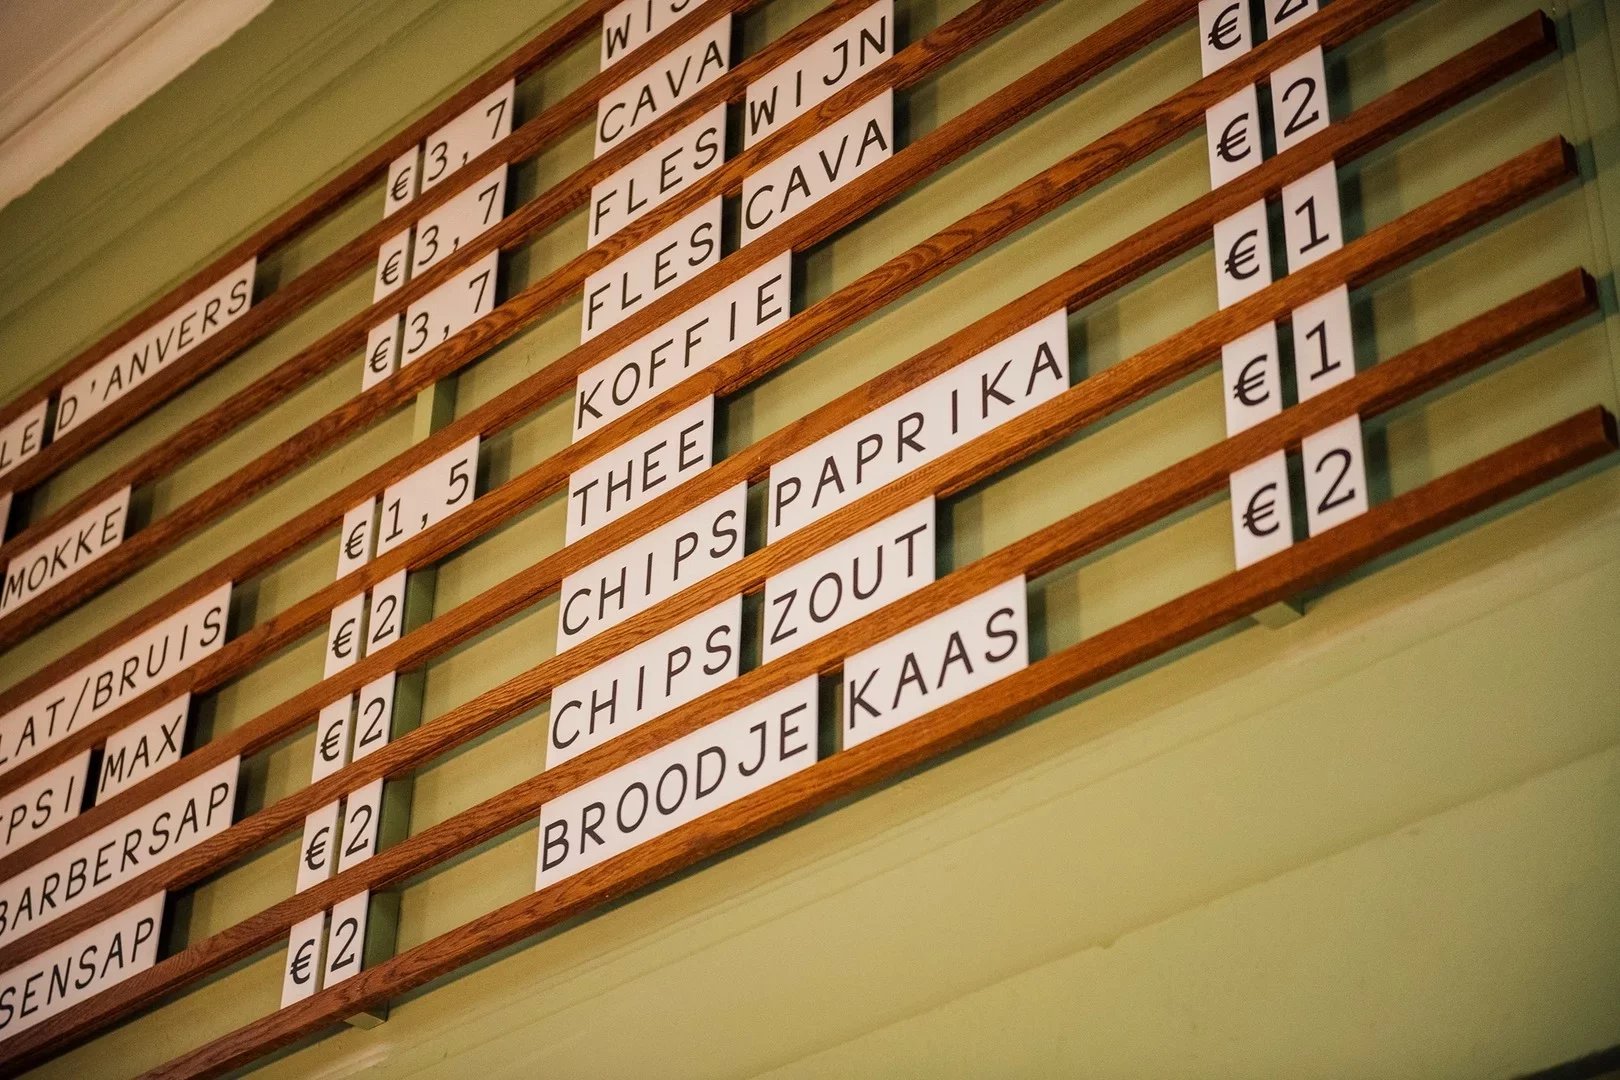 D'ANVERS € 3,7
€ 3,7
MOKKE € 3,7
LAT/BRUIS € 1,5
PSI MAX € 2
BARBERSAP € 2
SENSAP € 2
€ 2
WIJ
CAVA
FLES WIJN
FLES CAVA
KOFFIE € 2
THEE € 2
CHIPS PAPRIKA € 1
CHIPS ZOUT € 1
BROODJE KAAS € 2